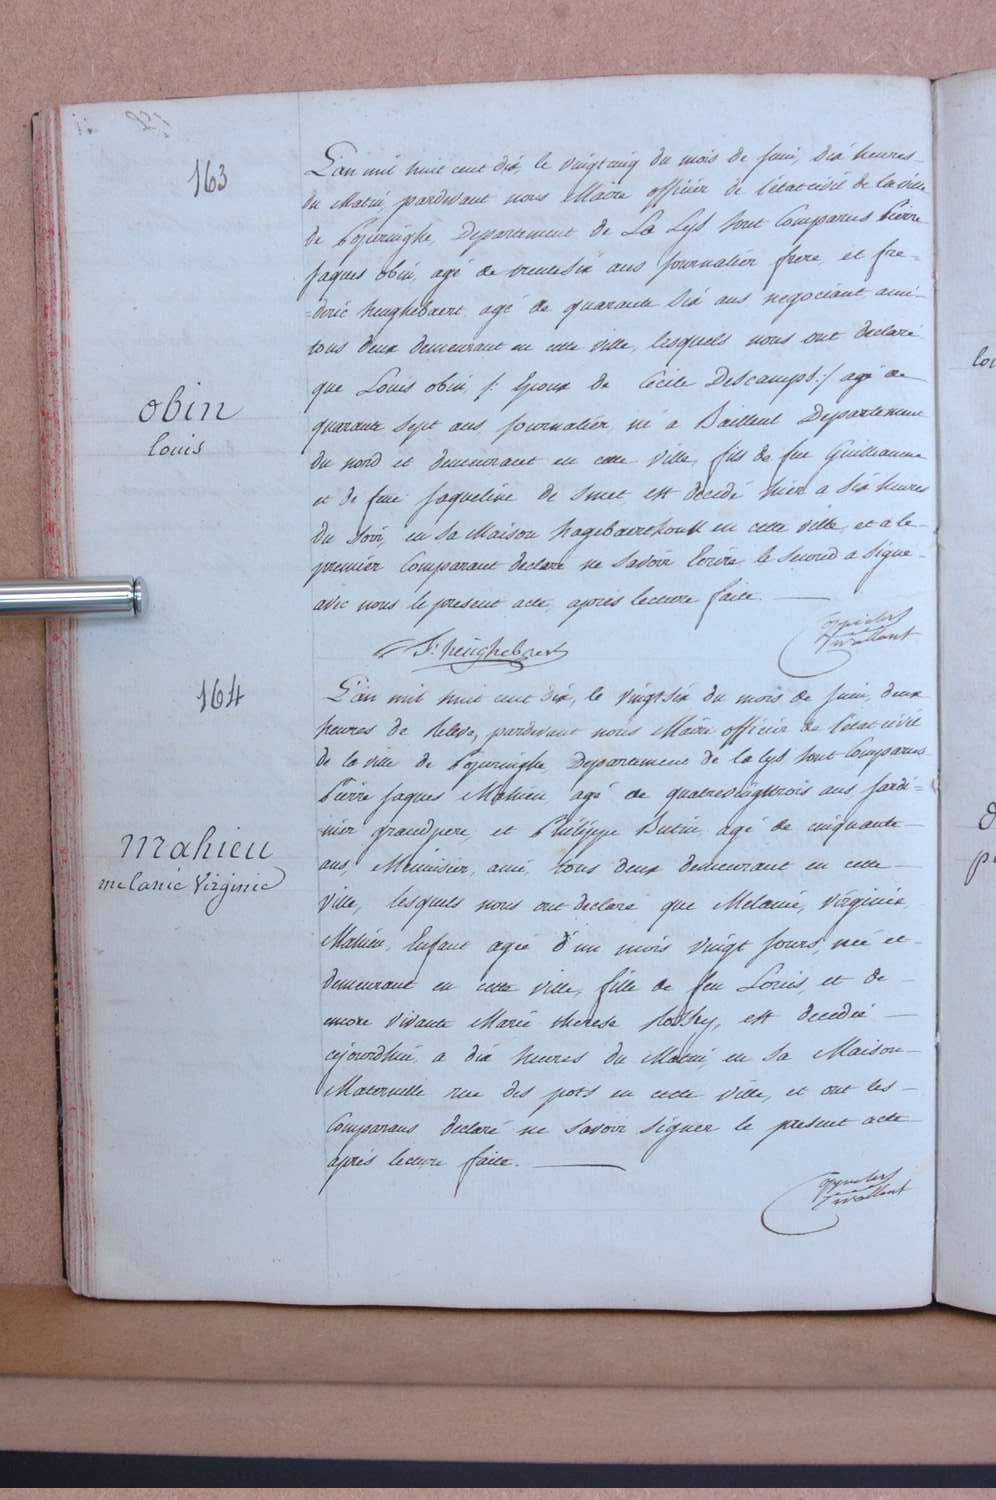 163
L'an mil huit cent dix, le vingtcinq du mois de Juin, dix heures-
du Matin, pardevant nous Maire officier de l'état civil de la ville
de Poperinghe, Departement de La Lys sont Comparus Pierre
Jaques obin, agé de trentesix ans journalier frere, et fre=
=deric heughebaert, agé de quarante six ans negociant, ami-
tous deux demeurant en cette ville, lesquels nous ont declaré
que Louis obin, /: Epoux de Cecile Descamps :/ agé de
quarante sept ans, journalier, né a Bailleul Departement
du nord et demeurant en cette ville, fils de feu Guilliaume
et de feue Jaqueline de Smet, est decedé hier a six heures
du Soir, en sa Maison en cette ville, et a le-
premier Comparant declaré ne savoir Ecrire le second a Signé-
avec nous le present acte, après lecture faite.
obin
louis
F: heughebaert
164
L'an mil huit cent dix, le vingtsix du mois de Juin, deux
heures de Releve, pardevant nous Maire officier de l'état civil
de la ville de Poperinghe, Departement de la Lys sont Comparus
Pierre Jaques Mahieu, agé de quatrevingttrois ans Jardi=
nier grandpere, et Philippe Butin, agé de cinquante
ans, Menuisier, ami, tous deux demeurant en cette-
ville, lesquels nous ont declaré que Melanie, Virginie,
Mahieu, Enfant agée d'un mois vingt jours, née et-
demeurant en cette ville, fille de feu Louis, et de-
encore vivante Marie therese, est decedée-
cejourdhui, a dix heures du Matin, en sa Maison-
Maternelle rue des pots en cette ville, et ont les-
Comparans declaré ne savoir signer le present acte
après lecture faite.
mahieu
melanie Virginie